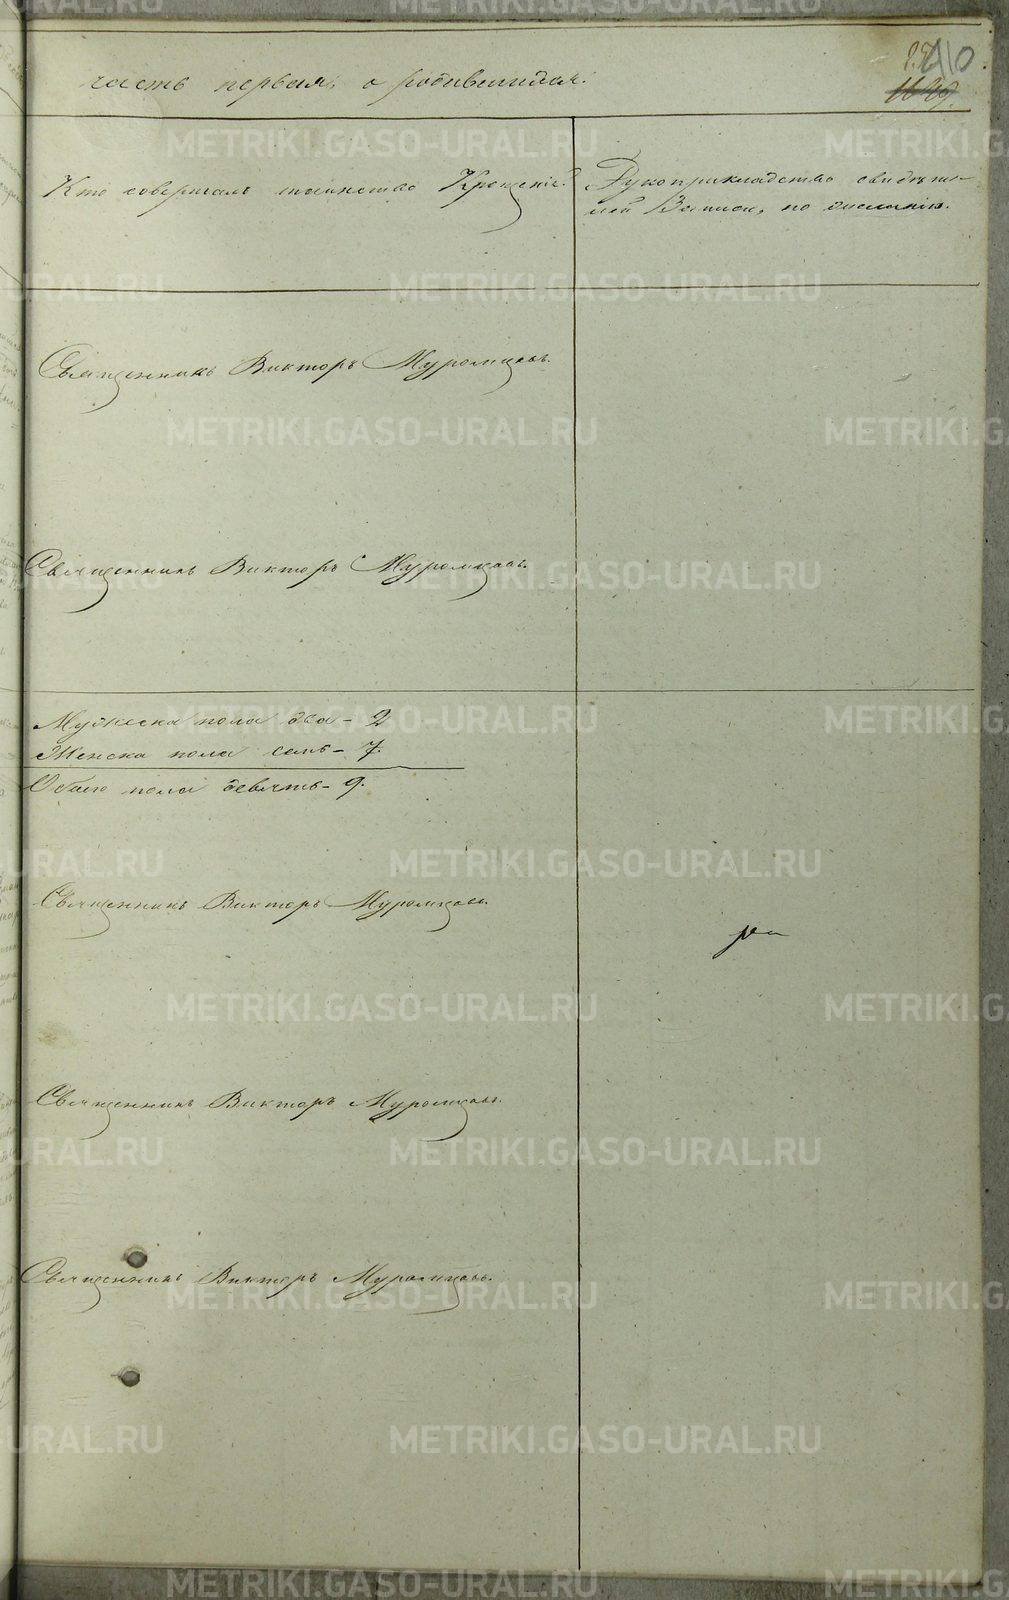 часть первая, о родившихся.
410
Кто совершалъ таинство Крещенія?
Рукоприкладство свидѣте-
лей Записи, по желанію.
Священникъ Викторъ Муромцовъ.
Священникъ Викторъ Муромцовъ.
Мужеска пола два - 2
Женска пола семь - 7.
Обоего пола девять - 9.
Священникъ Викторъ Муромцовъ.
Священникъ Викторъ Муромцовъ.
Священникъ Викторъ Муромцовъ.
METRIKI.GASO-URAL.RU